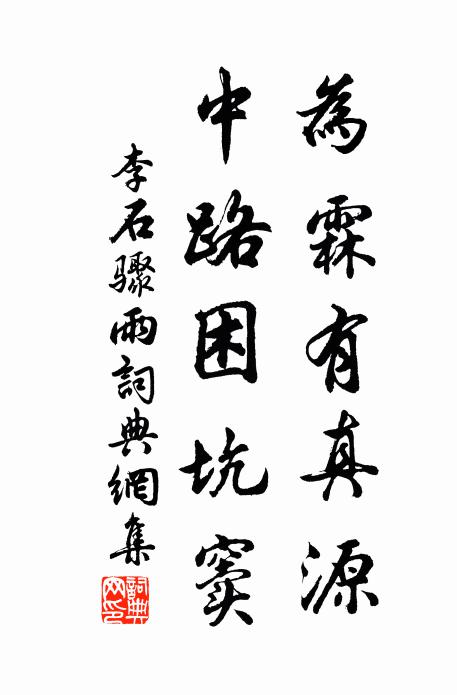 為霖有真源
中路困坑竇
李石驟雨詞典網集